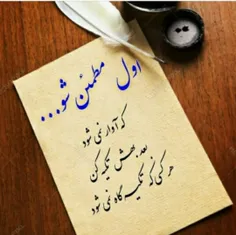 اول مطمئن شو...
که آوار نمی شود
بعد بهش تکیه کن
هر کسی که تکیه گاه نمی شود